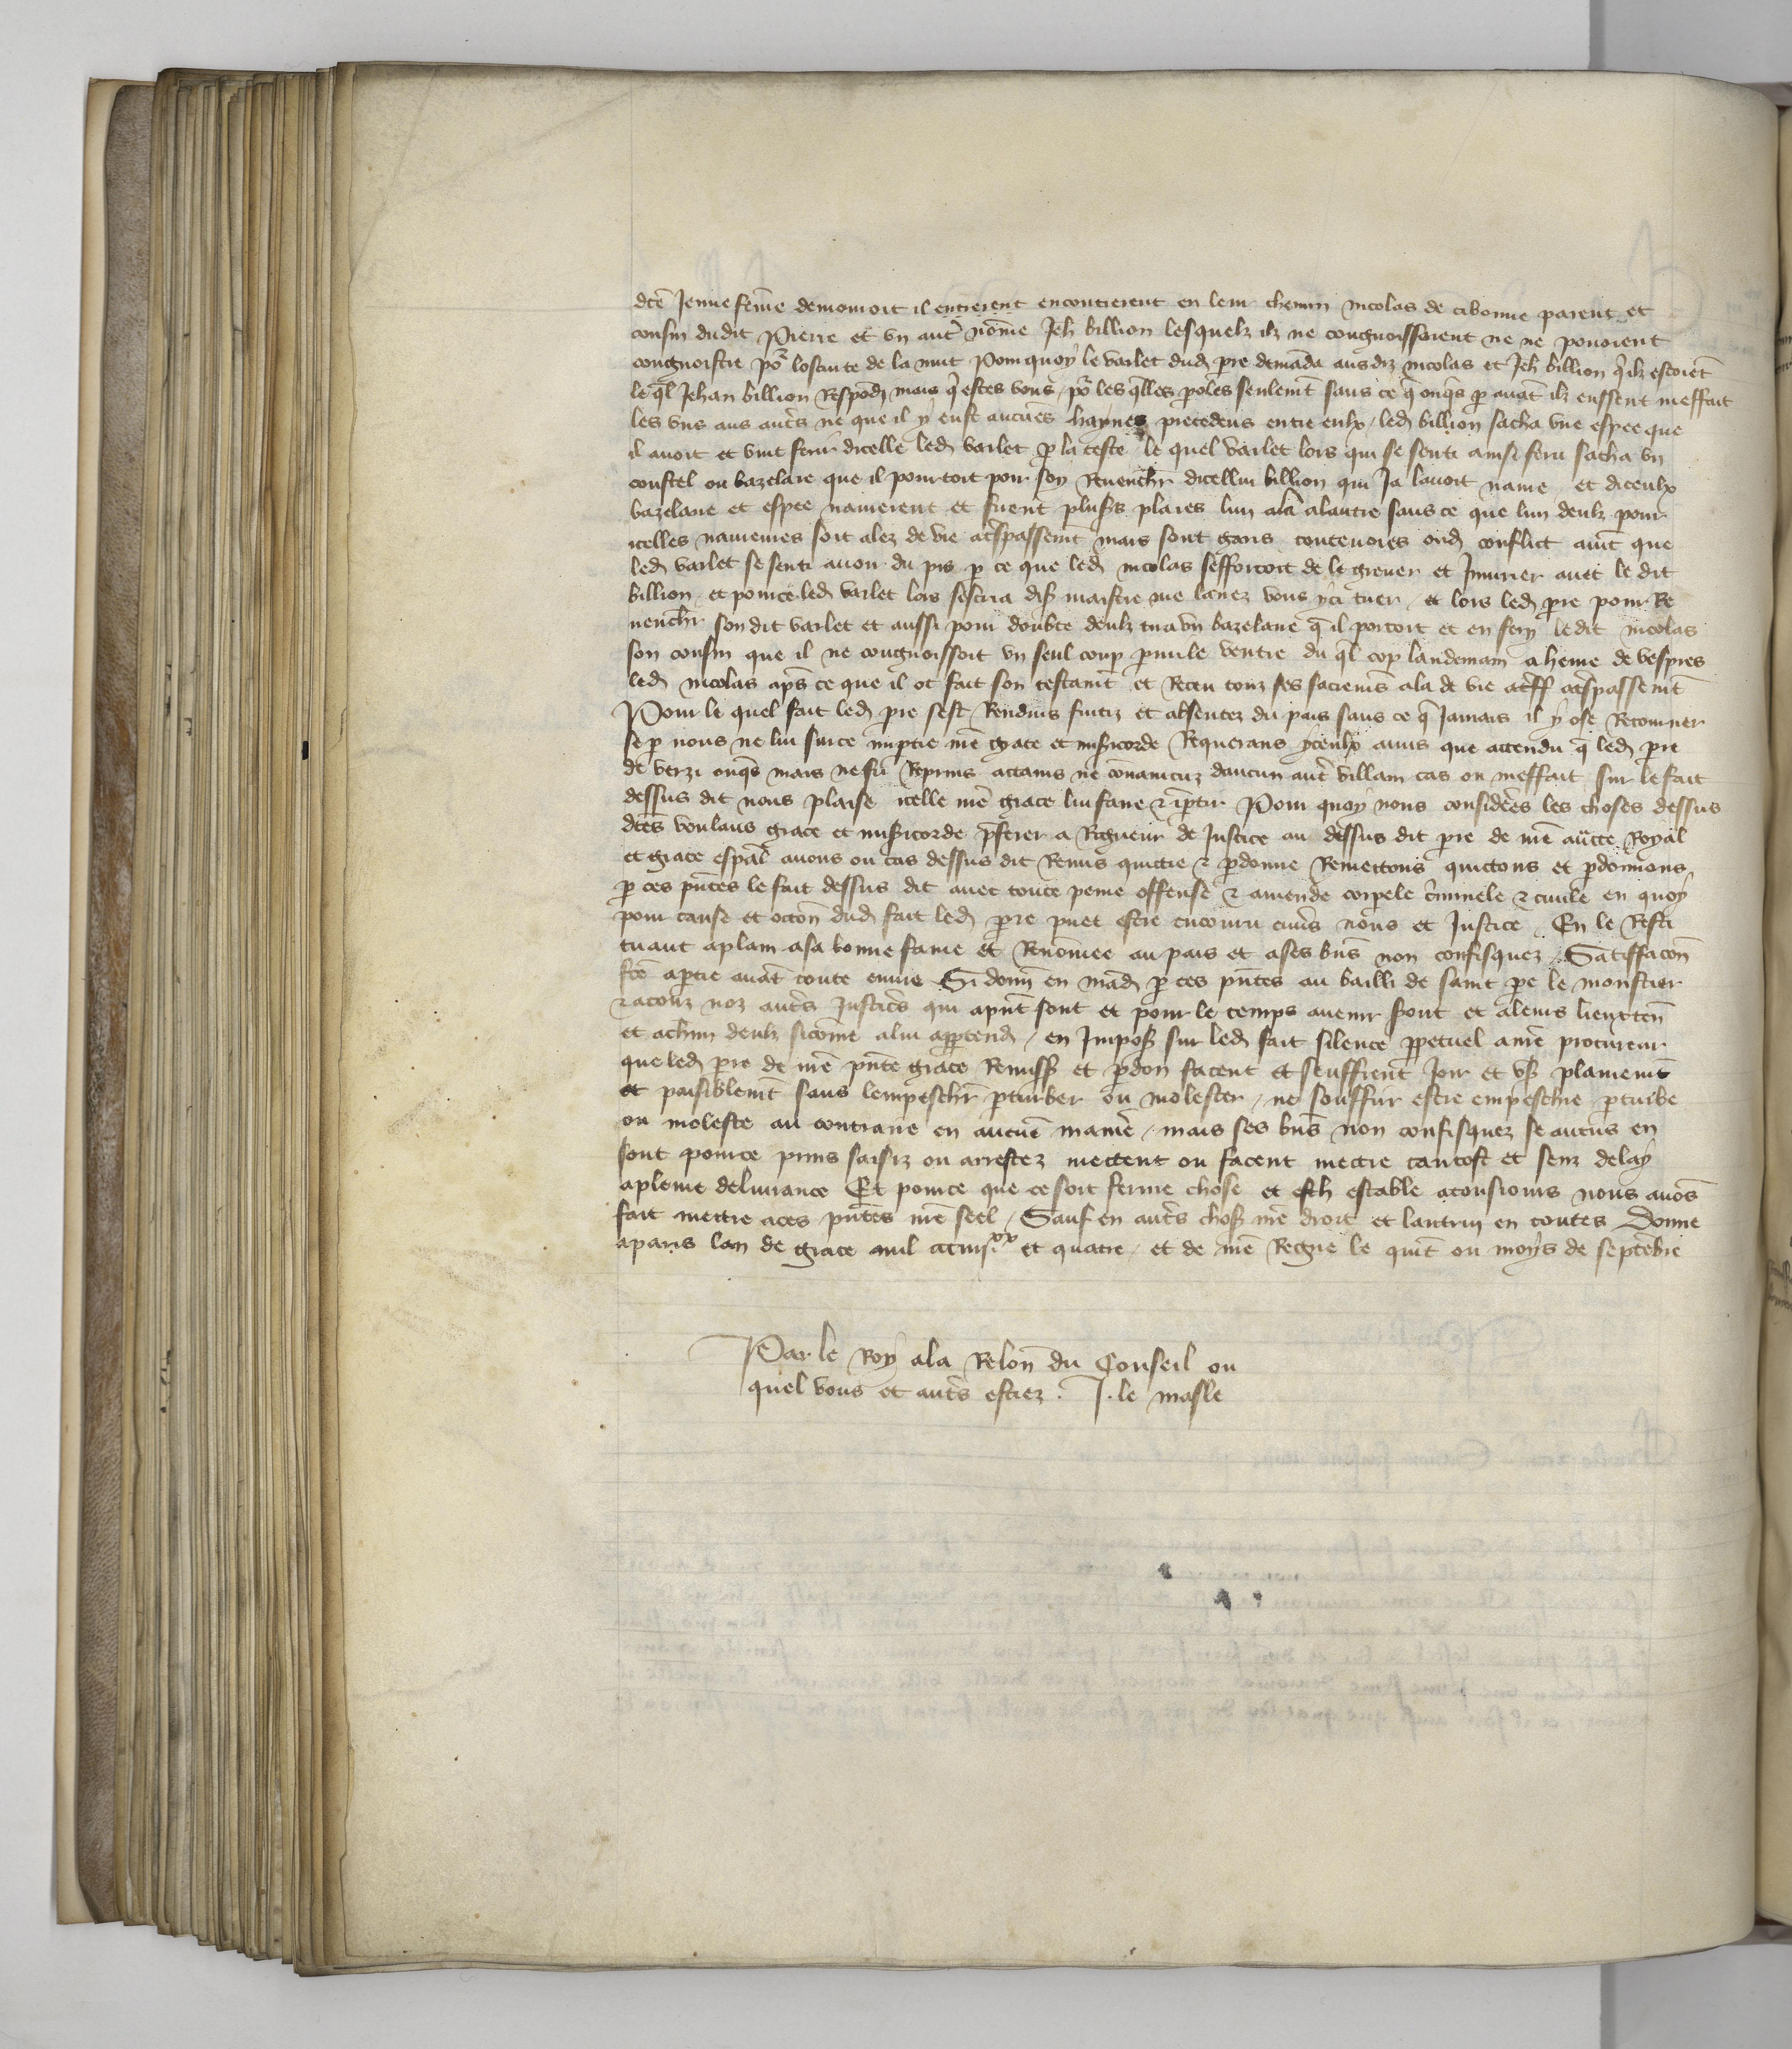 dcē Jenne feme demouroit il entrerent encontrerent en leur chemin nicolas de cibonne parent et
cousin dudit Pierre et vn autr̄ nōme Jeh billion lesquelz ilz ne congnoissoient ne ne pouoient
congnoistre po᷑ loscurte de la nuit Pourquoy le varlet dud pre demāda ausdiz nicolas et Jeh billion q̄ ilz estoiēt
le ql̄ Jehan billion Respōd mais q̄ estes vous / po᷑ les qlles poles seulemt̄ sans ce q̄ onqs p auāt ilz eussent meffait
les vns aus autr̄s ne que il y eust aucūes haynes precedens entre eulx / led billion sacha vne espee que
il auoit et vint ferir dicelle led varlet p la teste le quel varlet lors qui se senti ainsi feru sacha vn
coustel ou bazelare que il pourtoit pour soy Reuenchr̄ dicellui billion qui Ja lauoit naure et diceulx
bazelare et espee naurerent et firent plusrs plaies lun a alautre sans ce que lun deulz pour
icelles naureures soit alez de vie a trespassemt mais sont garis contenoies oud conflict auint que
led varlet se senti auoir du pis p ce que led nicolas sefforcoit de le greuer et Iniurier auec le dit
billion / et pource led varlet lors sescria dis maistre me lairez vous yci tuer / et lors led pre pour Re
uenchr̄ son dit varlet et aussi pour doubte deulz tira vn bazelaire q̄ il portoit et en fery le dit nicolas
son cousin que il ne congnoissoit vn seul coup pmi le ventre du ql cop landemain a heure de vespres
led nicolas apr̄s ce que il ot fait son testamt̄ et Receu touz ses sacremēs ala de vie a trespassemt̄
Pour le quel fait led pre sest Rendus fuitiz et absentez du pais sans ce q̄ Jamais il y ose Retourner
se p nous ne lui sur ce impartie nrē grace et misicorde Requerans yceulx amis que attendu q̄ led pre
de verzi onqs mais ne fu Reprins attains ne cōuaincuz daucun autr̄ villain cas ou meffait sur le fait
dessus dit nous plaise icelle nrē grace lui faire & ipartir Pour quoy nous considerēs les choses dessus
dctēs voulans grace et misicorde pferer a Rigueur de Justice au dessus dit pre de nrē auctte Royal
et grace espāl auons ou cas dessus dit Remis quictie & pdonne Remettons quictons et pdonnons
p ces pn̄tes le fait dessus dit auec toute peine offense & amende corpele criminele & ciuile en quoy
pour cause et occōn dud fait led pre puet estre encouru enuers nous et Justice / En le Resti
tuant aplain a sa bonne fame et Renōmee au pais et a ses bn̄s non confisquez / Satiffacōn
fcē a ptie auāt toute euure Si donn̄ en mād p ces pn̄tes au bailli de saint pre le monstier
& a touz noz autr̄s Justicrs qui apn̄t sont et pour le temps auenir sront et aleurs lieuxten̄
et achūn deulz sicōme alui apptend / en Imposāt sur led fait silence ppetuel a nrē procureur
que led pre de nrē pn̄te grace Remissō et pdon facent et seuffrent Joir et vser plainemt̄
et paisiblemt̄ sans lempeschr̄ pturber ou molester / ne souffrir estre empeschie pturbe
ou moleste au contraire en aucūe manre / mais ses bn̄s non confisquez se aucūs en
sont pource prins saisiz ou arrestez mettent ou facent mettre tantost et senz delay
apleine deliurance Et pource que ce soit ferme chose et estable atousiours nous auōs
fait mettre aces pn̄tes nrē seel / Sauf en autr̄s chos nrē droit et lautruy en toutes Donne
aparis lan de grace mil ccc iiii xx et quatre / et de nrē Regne le quit ou moys de septēbre
Par le Roy ala Relon du Conseil ou
quel vous et autr̄s estiez . J. le masle